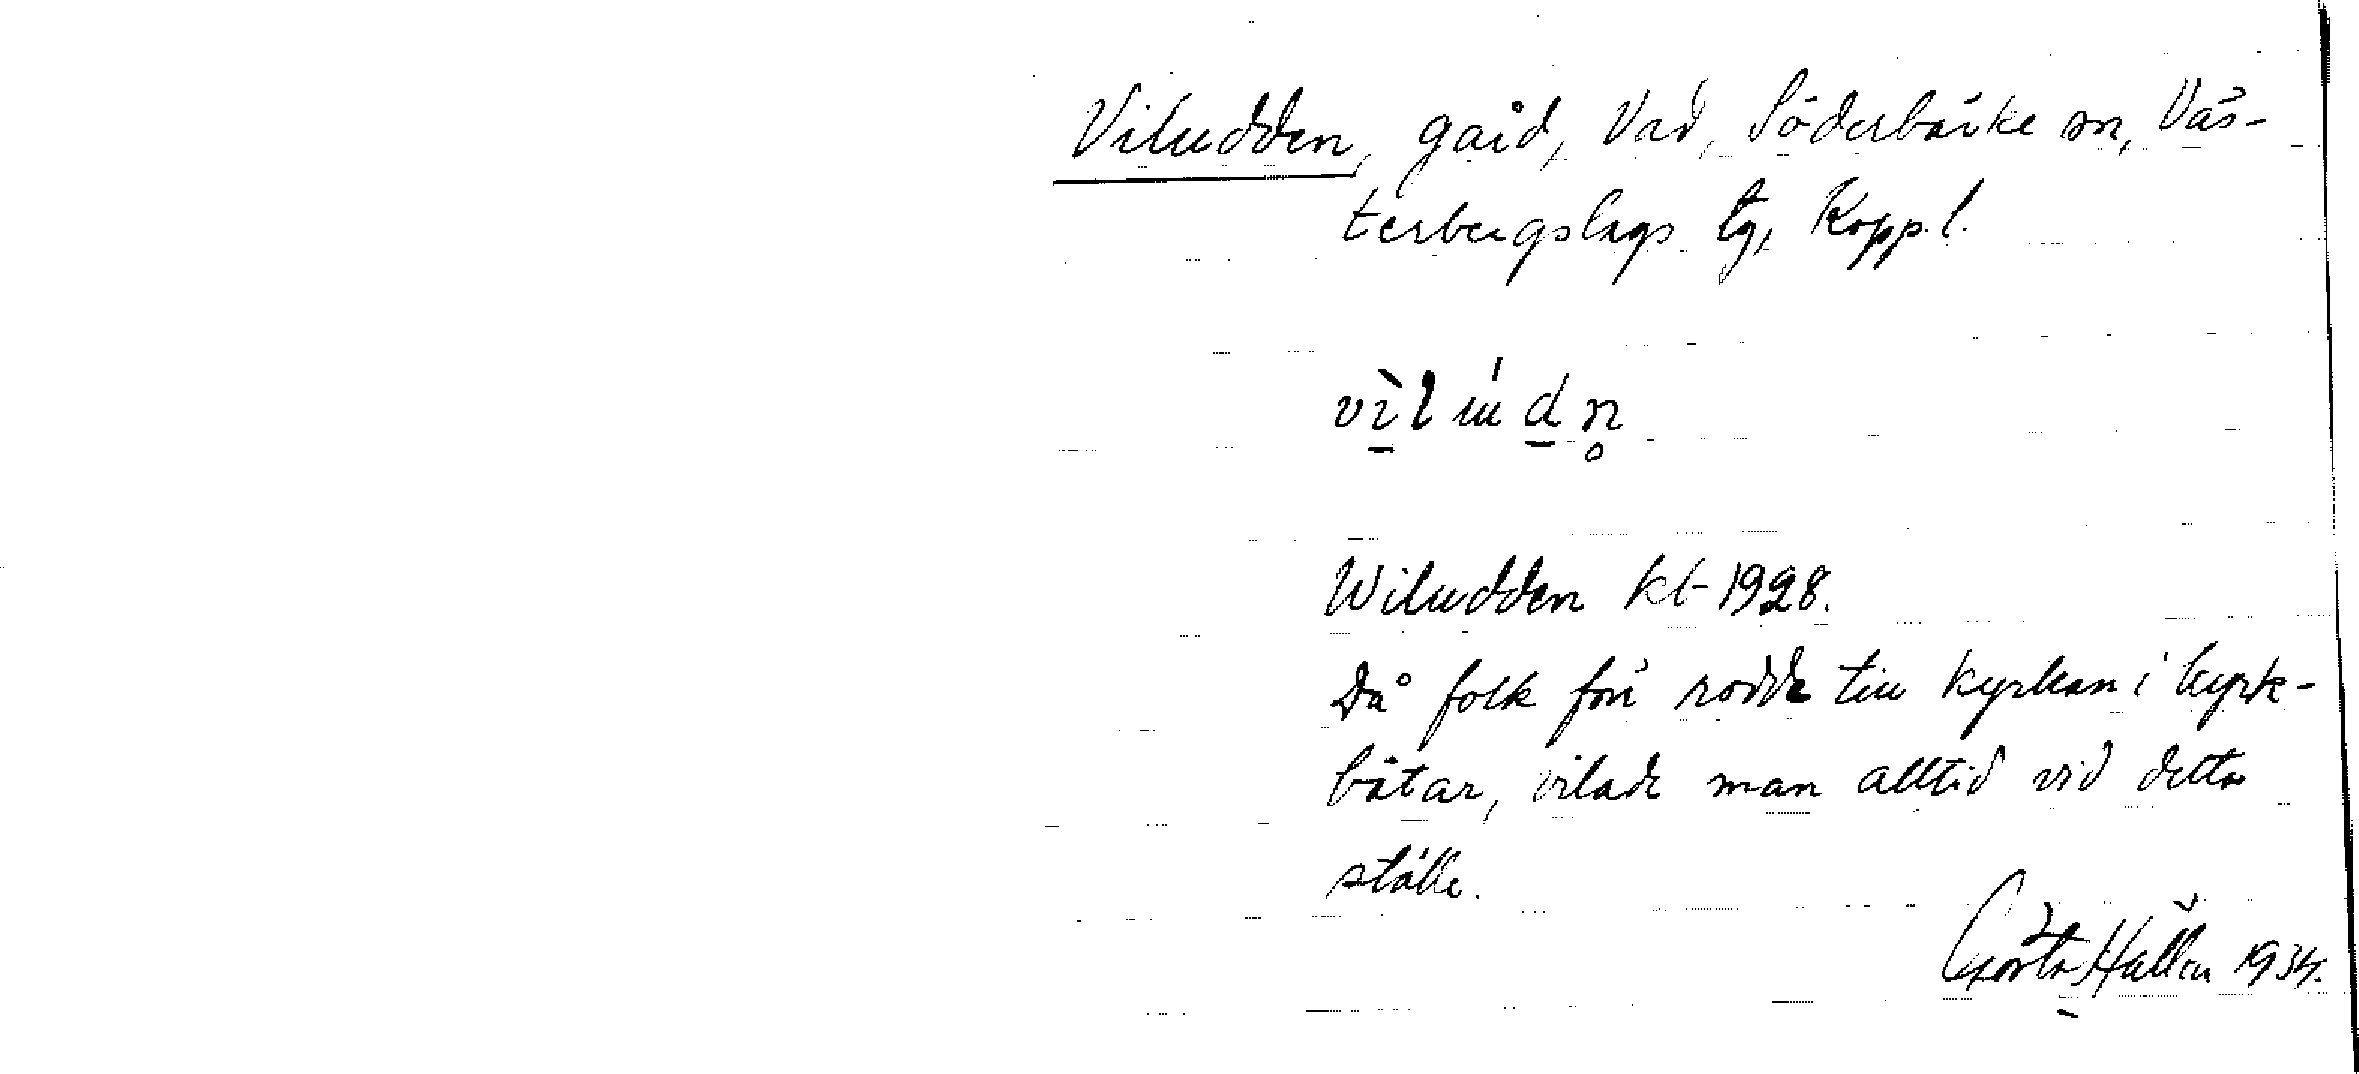 Viludden, gård, Vad, Söderbärke sn, Väs-
terbergslags tg, Kopp. l.
vìlúdn̥
Wiludden kb 1928.
Då folk förr rodde till kyrkan i kyrk-
båtar, vilade man alltid vid detta
ställe.
Gösta Hallén 1934.